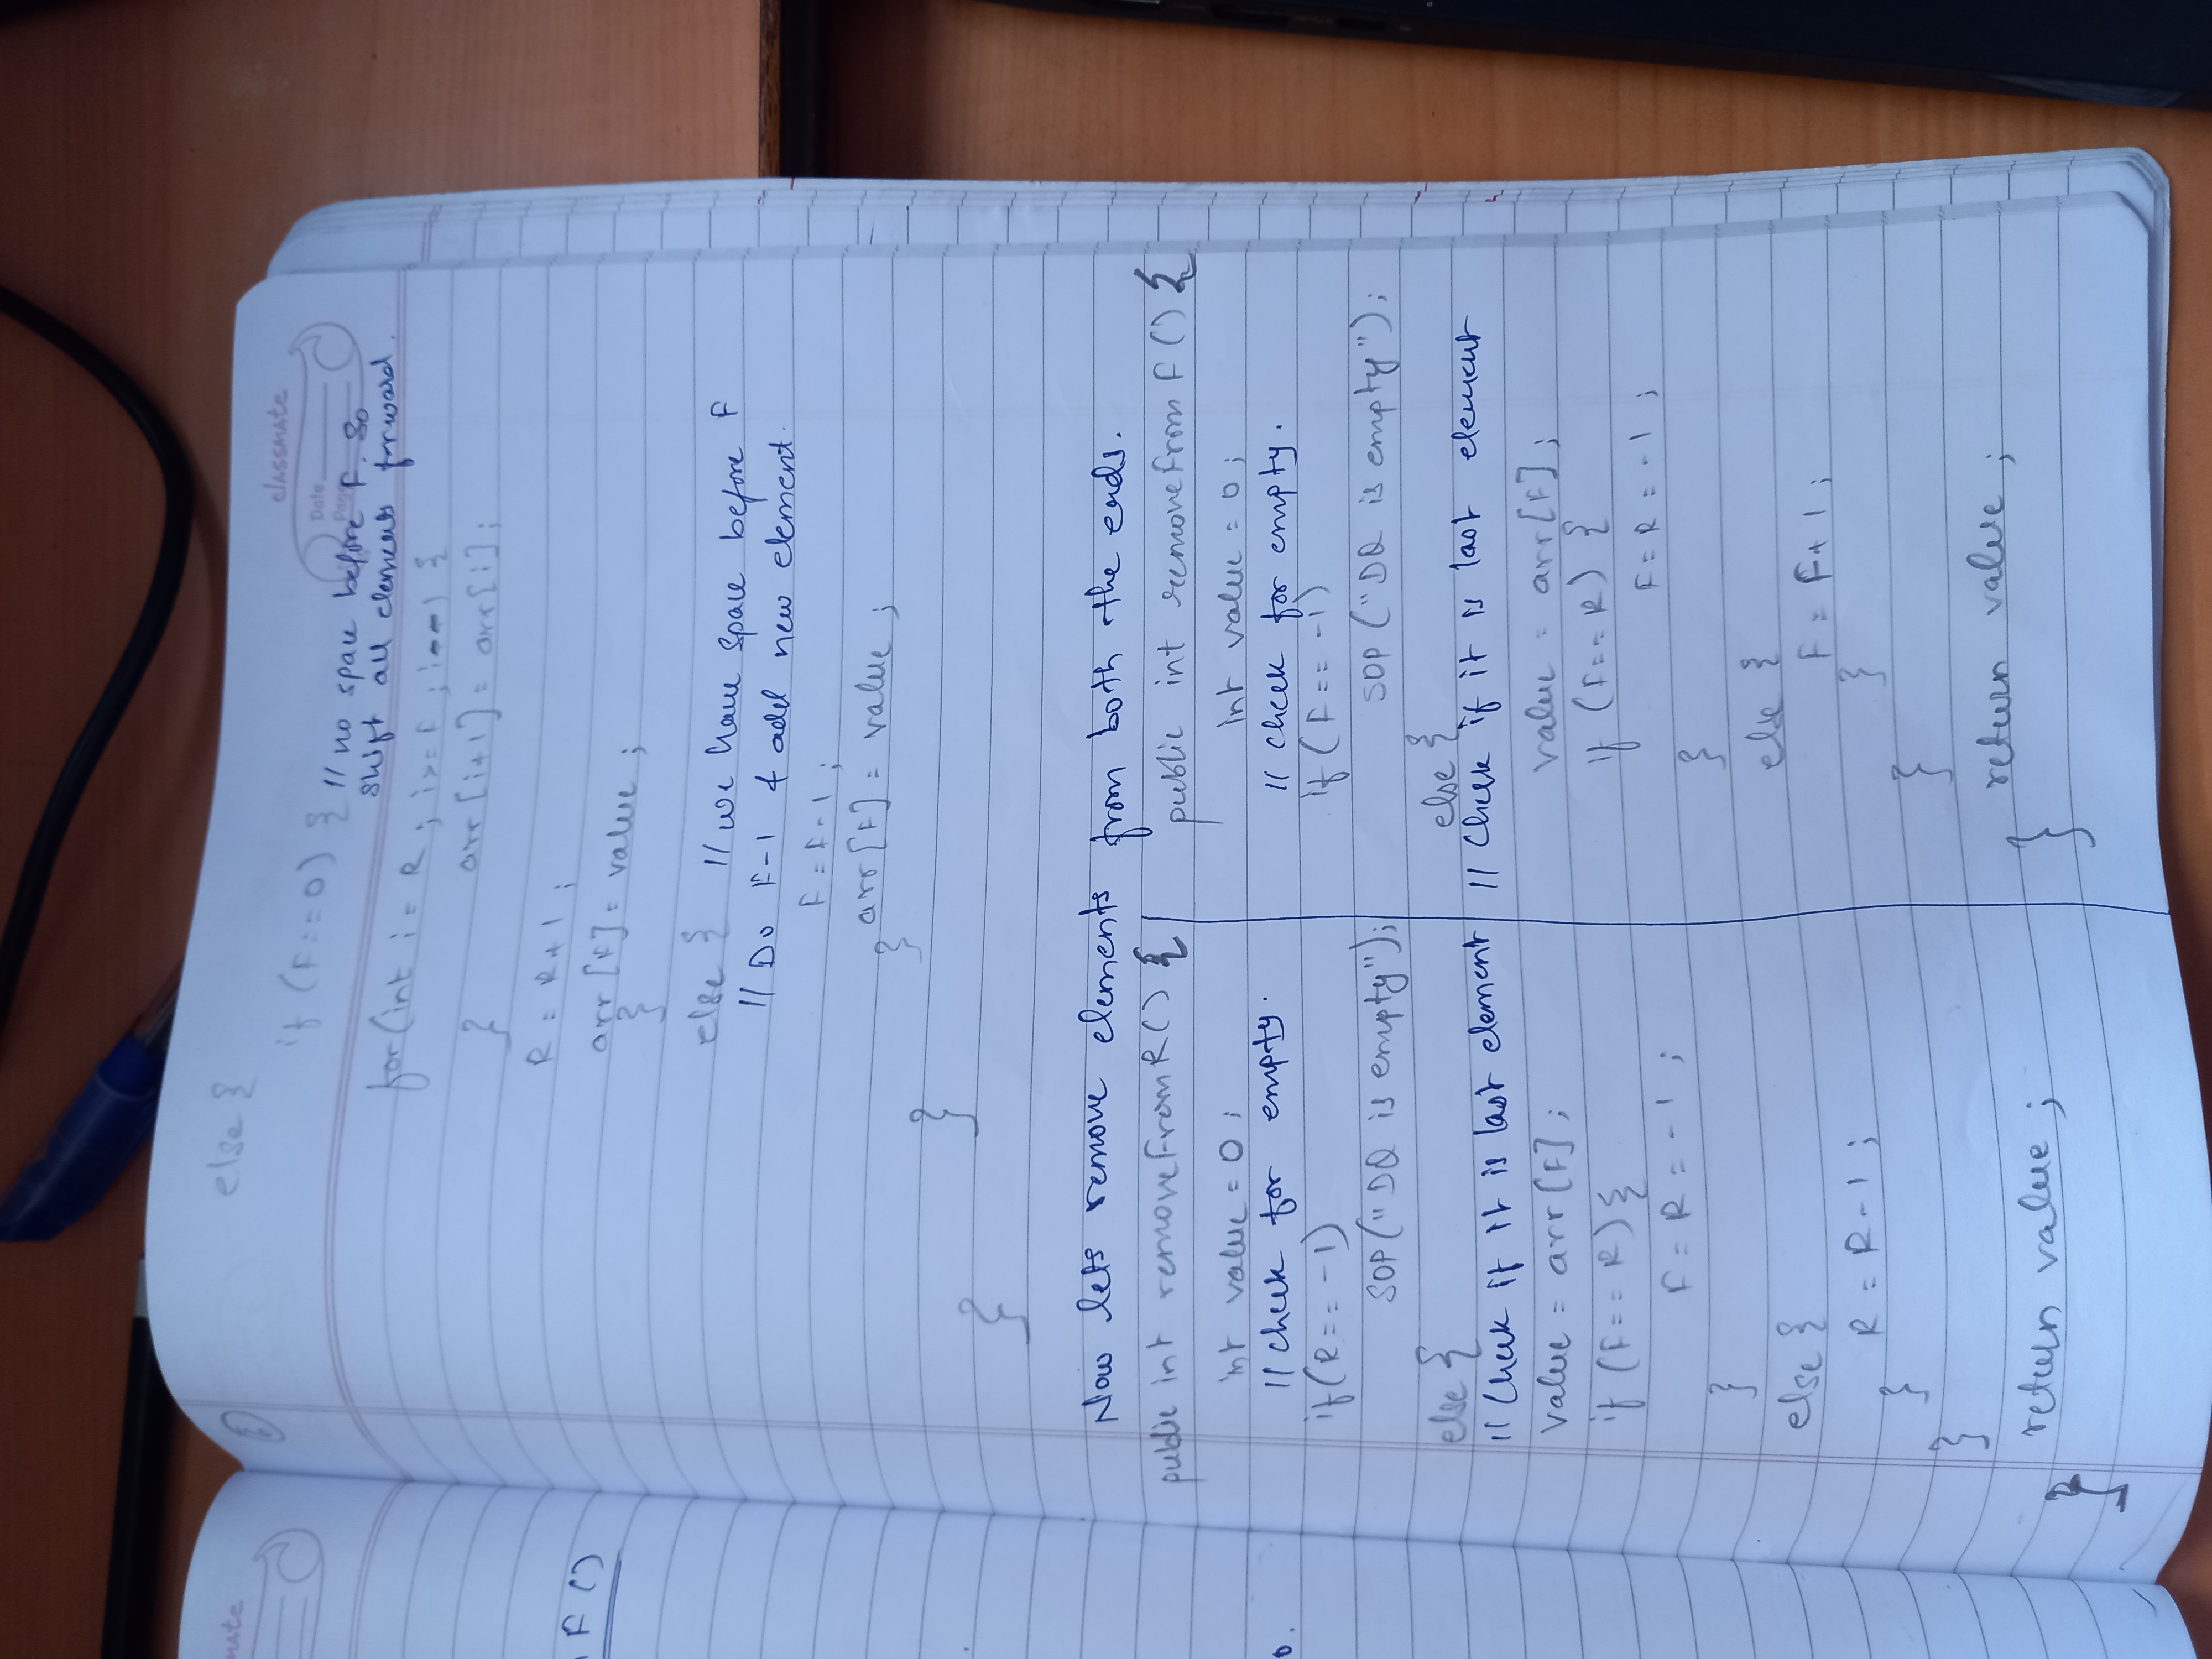 else {
classmate
Date
Page
if (F==0) { // no space before F. So
shift all elements forward.
for(int i = R ; i>=F ; i--) {
arr[i+1] = arr[i];
}
R = R+1 ;
arr[F] = value ;
}
else { // we have space before F
// Do F-1 & add new element.
F = F-1 ;
arr[F] = value ;
}
}
}
Now lets remove elements from both the ends.
public int removeFromR() {
int value = 0 ;
// check for empty.
if(R == -1)
SOP("DQ is empty");
else {
// Check if it is last element
value = arr[F] ;
if (F == R) {
F = R = -1 ;
}
else {
R = R-1 ;
}
}
return value ;
}
public int removeFromF() {
int value = 0 ;
// check for empty.
if (F == -1)
SOP ("DQ is empty");
else {
// Check if it is last element
value = arr[F] ;
if (F == R) {
F = R = -1 ;
}
else {
F = F+1 ;
}
}
return value ;
}
F()